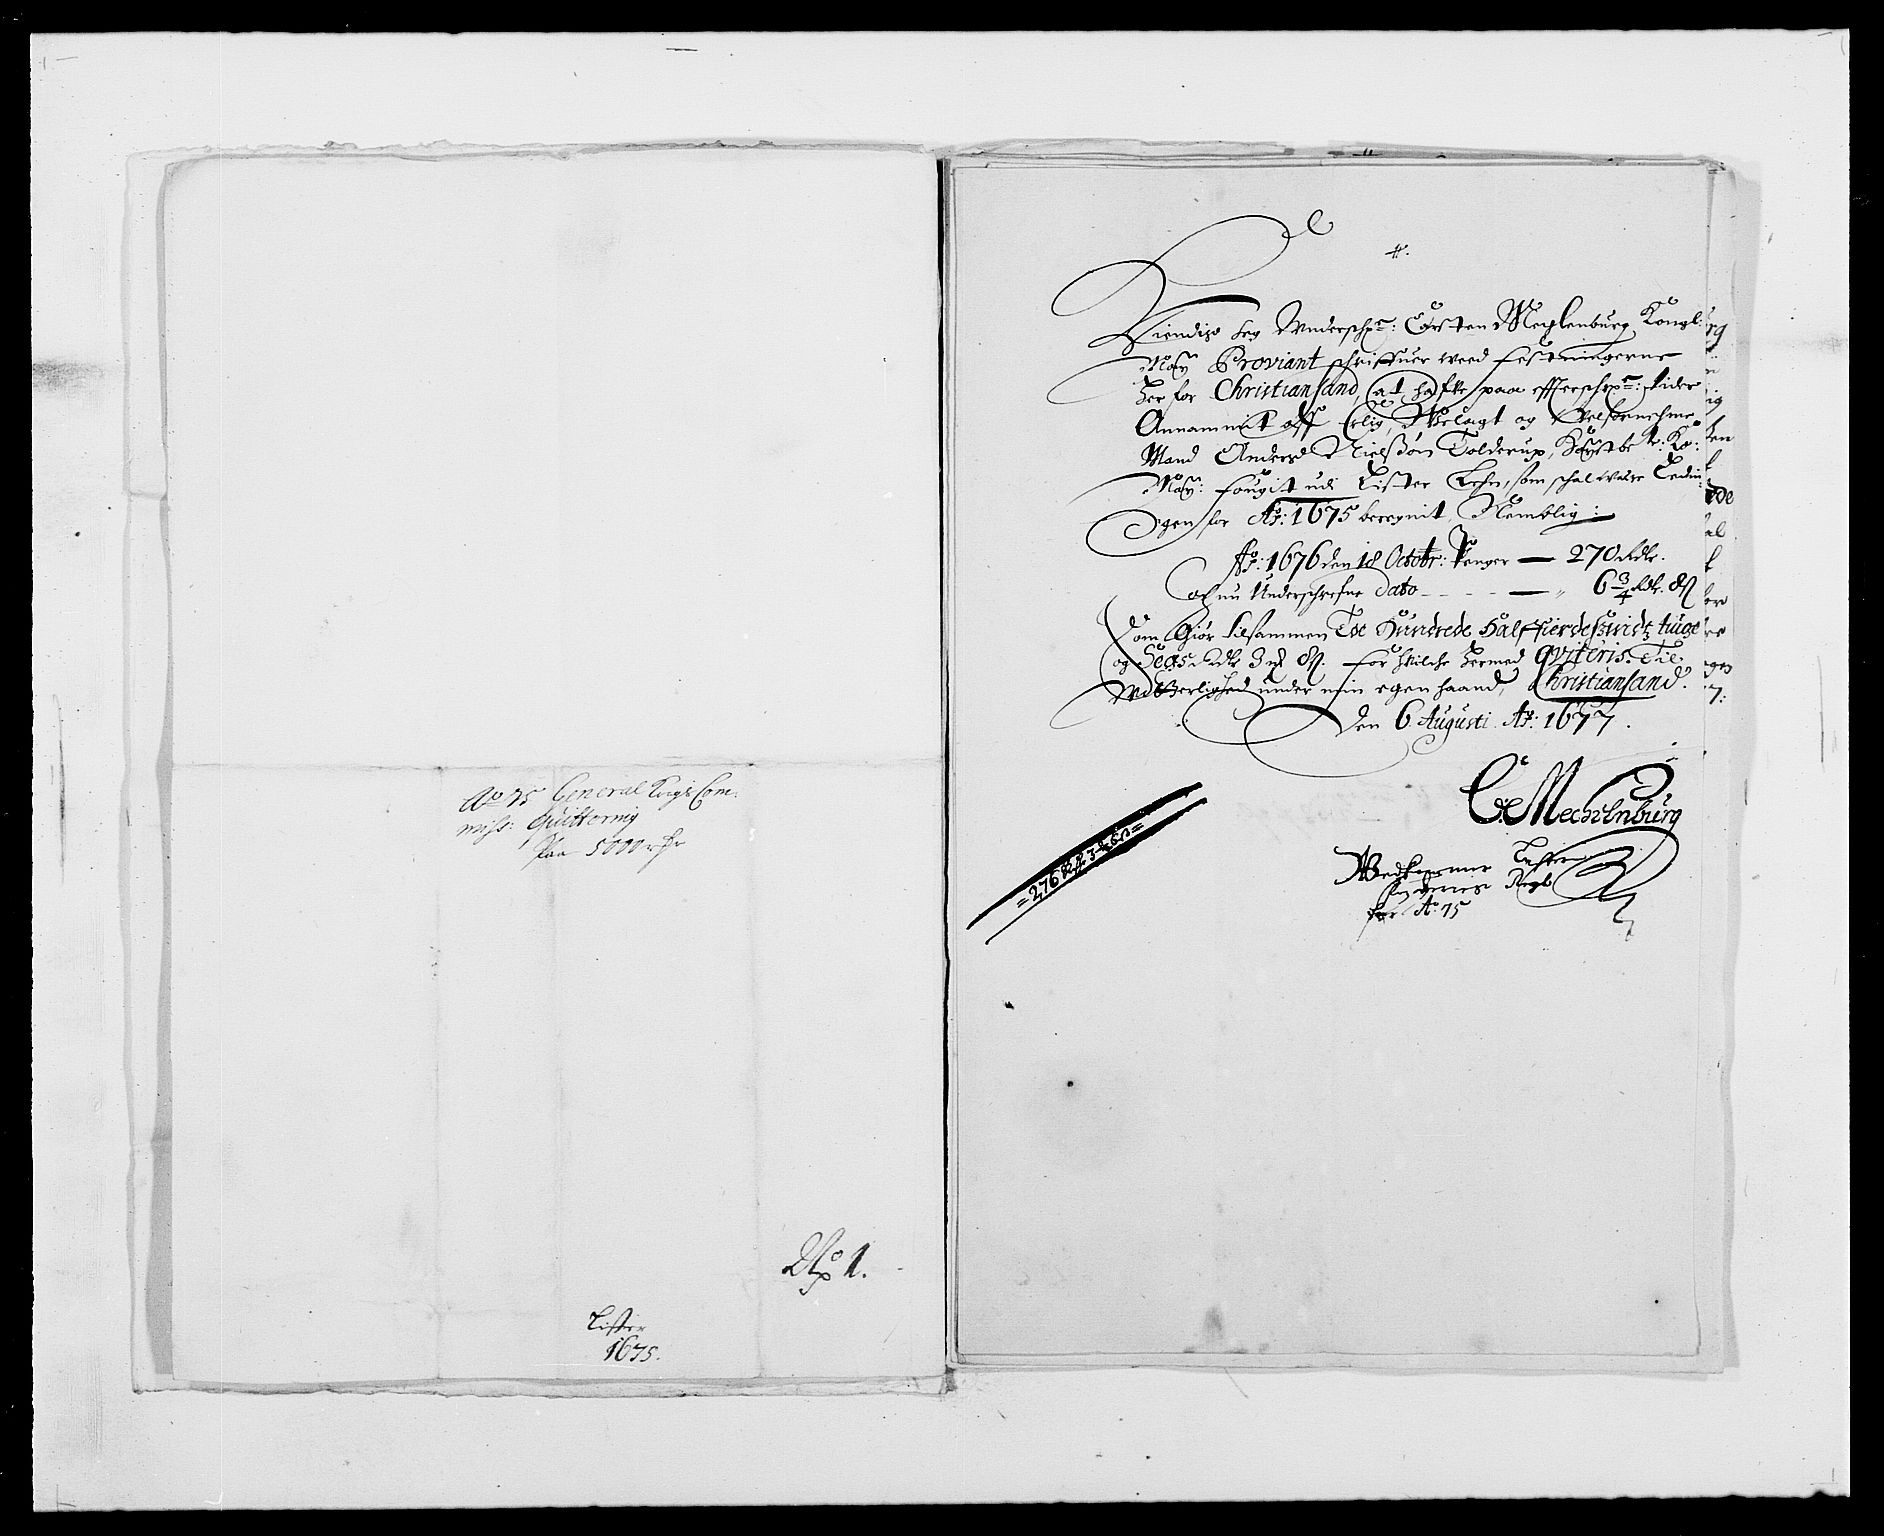 Ao 75 General Krigs Com:
miss: Quittering
Paa 5000 rdr
No 1.
Lister
1675.
Kiendis Jeg Underschrne: Carsten Mechlenburg, Kongl:
Mays Proviant schriffuer weed festningerne
her for Christiansand, at hafue paa effterschrne: tider
Annammit aff Erlig, Welagt og Welfornehme
Mand Anders Nielsøn Tolderup, Høystbete: Ko:
May: fougit udi Lister Lehn, som schal were
for Ao: 1675 beregnit, Nemblig:
Ao: 1676 den 18 Octobr: Penger — 270 Rdr.
og nu Underschrefne dato - - - — „ 6 3/4 Rdr. ß
Som Giør tilsammen Toe Hundrede Halffierdesindztiuge
og Sex Rdr 3 ß. for hvilche hermed Qviteris. Til
Witterlighed under min egen haand, Christiansand.
den 6 Augusti Ao: 1677.
C. Mechlenburg
Wedkommer Lister
Regb
for Ao. 75
= 276 Rdr 3 =